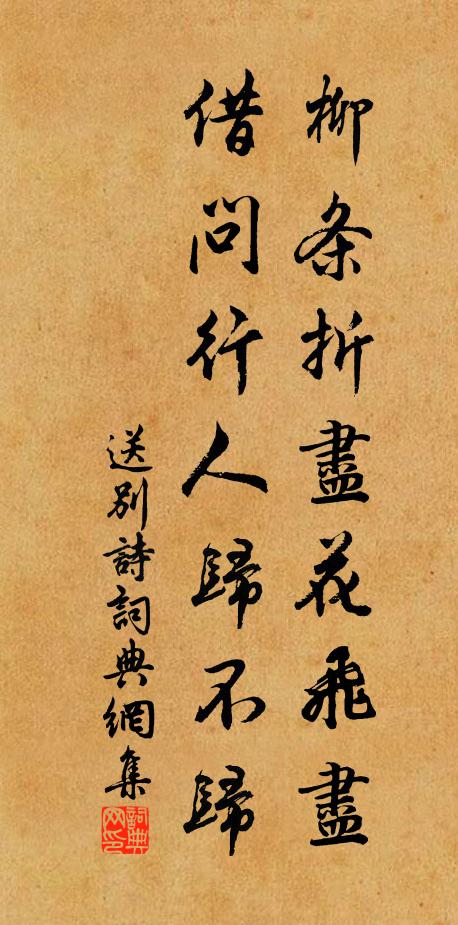 柳条折盡花飛盡
借問行人歸不歸
送別詩詞典網集
詞典网印